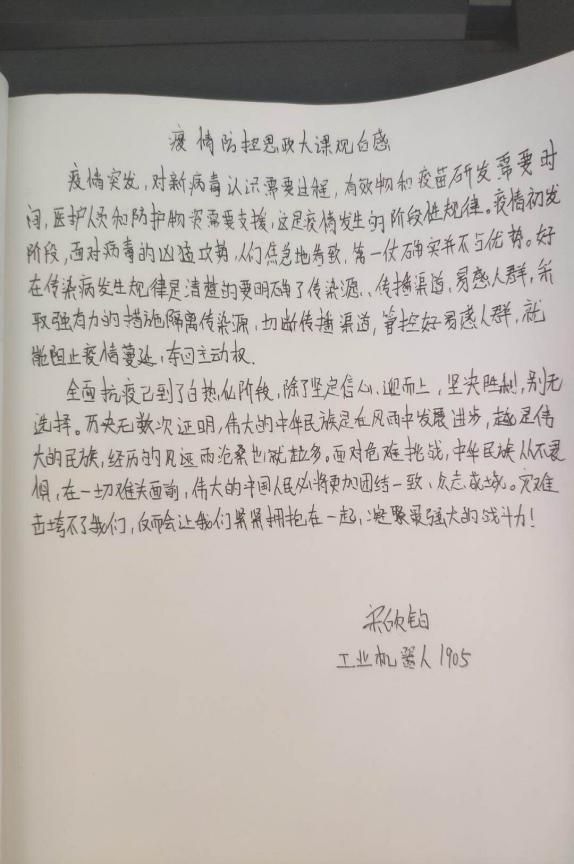 疫情防控思政大课观后感
疫情突发，对新病毒认识需要过程，有效物和疫苗研发需要时
间，医护人员和防护物资需要支援，这是疫情发生的阶段性规律。疫情初发
阶段，面对病毒的凶猛攻势，人们焦急地等致，第一仗确实并不占优势。好
在传染病发生规律是清楚的要明确了传染源、传播渠道，易感人群，采
取强有力的措施隔离传染源，切断传播渠道，管控好易感人群，就
能阻止疫情蔓延，夺回主动权.
全面抗疫已到了白热化阶段，除了坚定信心、迎而上，坚决胜利，别无
选择。历史无数次证明，伟大的中华民族是在风雨中发展进步，越是伟
大的民族，经历的风雨沧桑也就越多。面对危难挑战，中华民族从不畏
惧，在一切难关面前，伟大的中国人民必将更加团结一致、众志成城。灾难
击垮不了我们，反而会让我们紧紧拥抱在一起，凝聚最强大的战斗力！
宋欣
工业机器人1905